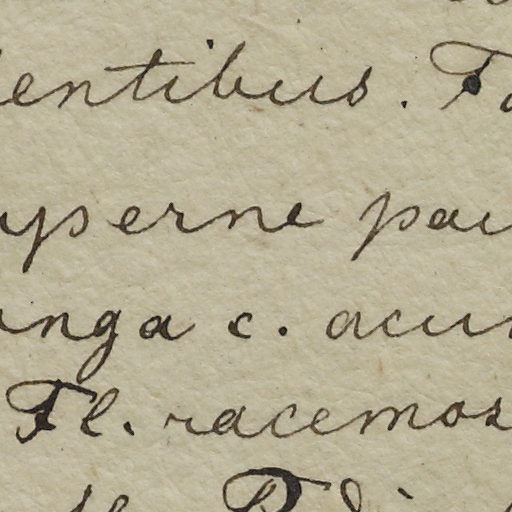 entibus. Fo
yperne pau
nga c. acu
Fl. racemos